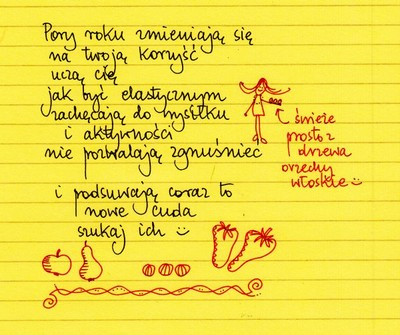 Pory roku zmieniają się
na twoją korzyść
uczą cię
jak być elastycznym
zachęcają do wysiłku
i aktywności
nie pozwalają zgnuśnieć
i podsuwają coraz to
nowe cuda
szukaj ich :)
świeże
prosto z
drzewa
orzechy
włoskie :)